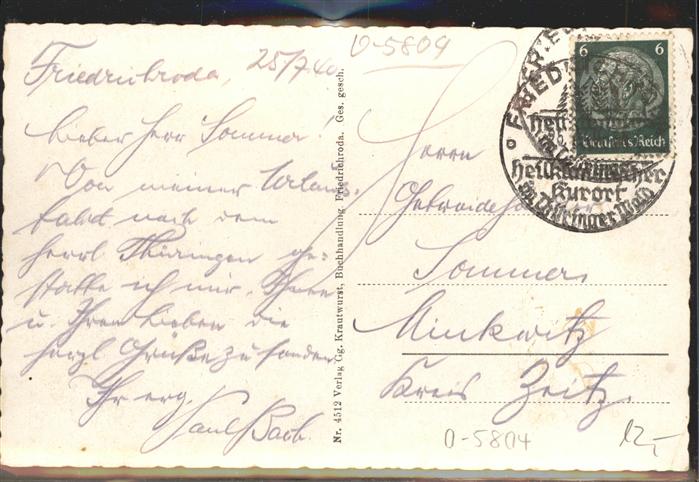 Friedrichroda, 25/7 40
O-5809
Lieber Herr Sommer!
Von meiner Urlaubs-
fahrt nach dem
herrl. Thüringen ge-
statte ich mir, Ihnen
u. Ihren Lieben die
herzl Grüße zu senden
Ihr erg.
Paul
Nr. 4512 Verlag Gg. Krautwurst, Buchhandlung, Friedrichroda. Ges. gesch.
6 6
Deutsches Reich
FRIEDRICHRODA
heilklimatischer
Kurort
im Thüringer Wald
Herrn
Sommer
Minkwitz
Kreis Zeitz.
O-5804
12,-